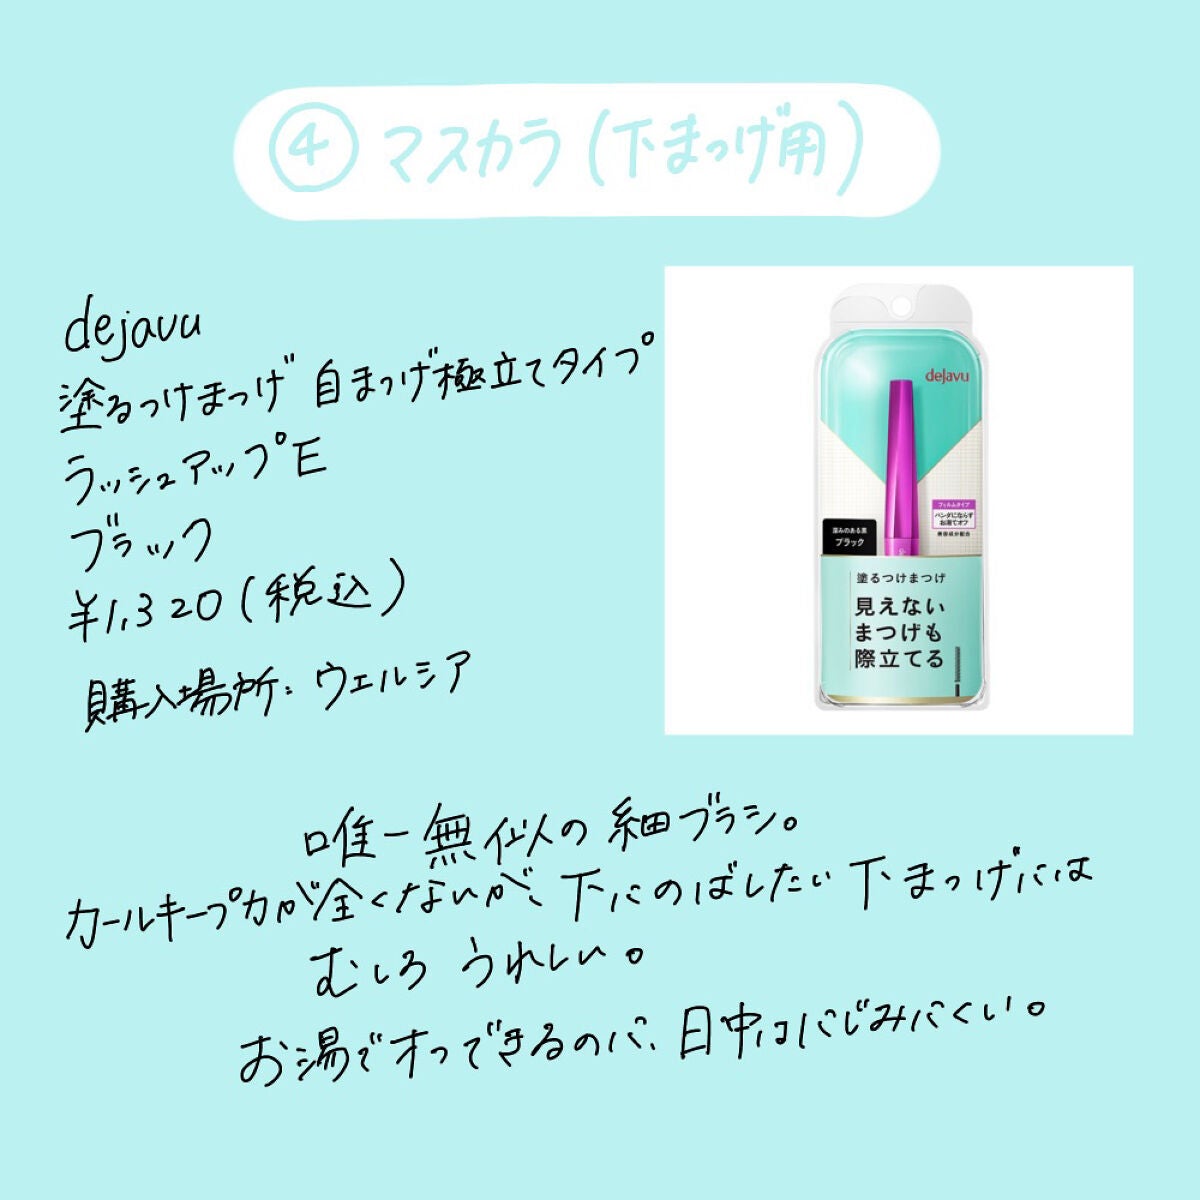 ④ マスカラ (下まつげ用)
dejavu
塗るつけまつげ 自まつげ極立てタイプ
ラッシュアップE
ブラック
¥1,320 (税込)
購入場所: ウェルシア
dejavu
フィルムタイプ
パンダにならず
お湯でオフ
美容成分配合
深みのある黒
ブラック
塗るつけまつげ
見えない
まつげも
際立てる
唯一無似の細ブラシ。
カールキープ力が全くないが、下にのばしたい下まつげには
むしろうれしい。
お湯でオフできるのに、日中はにじみにくい。